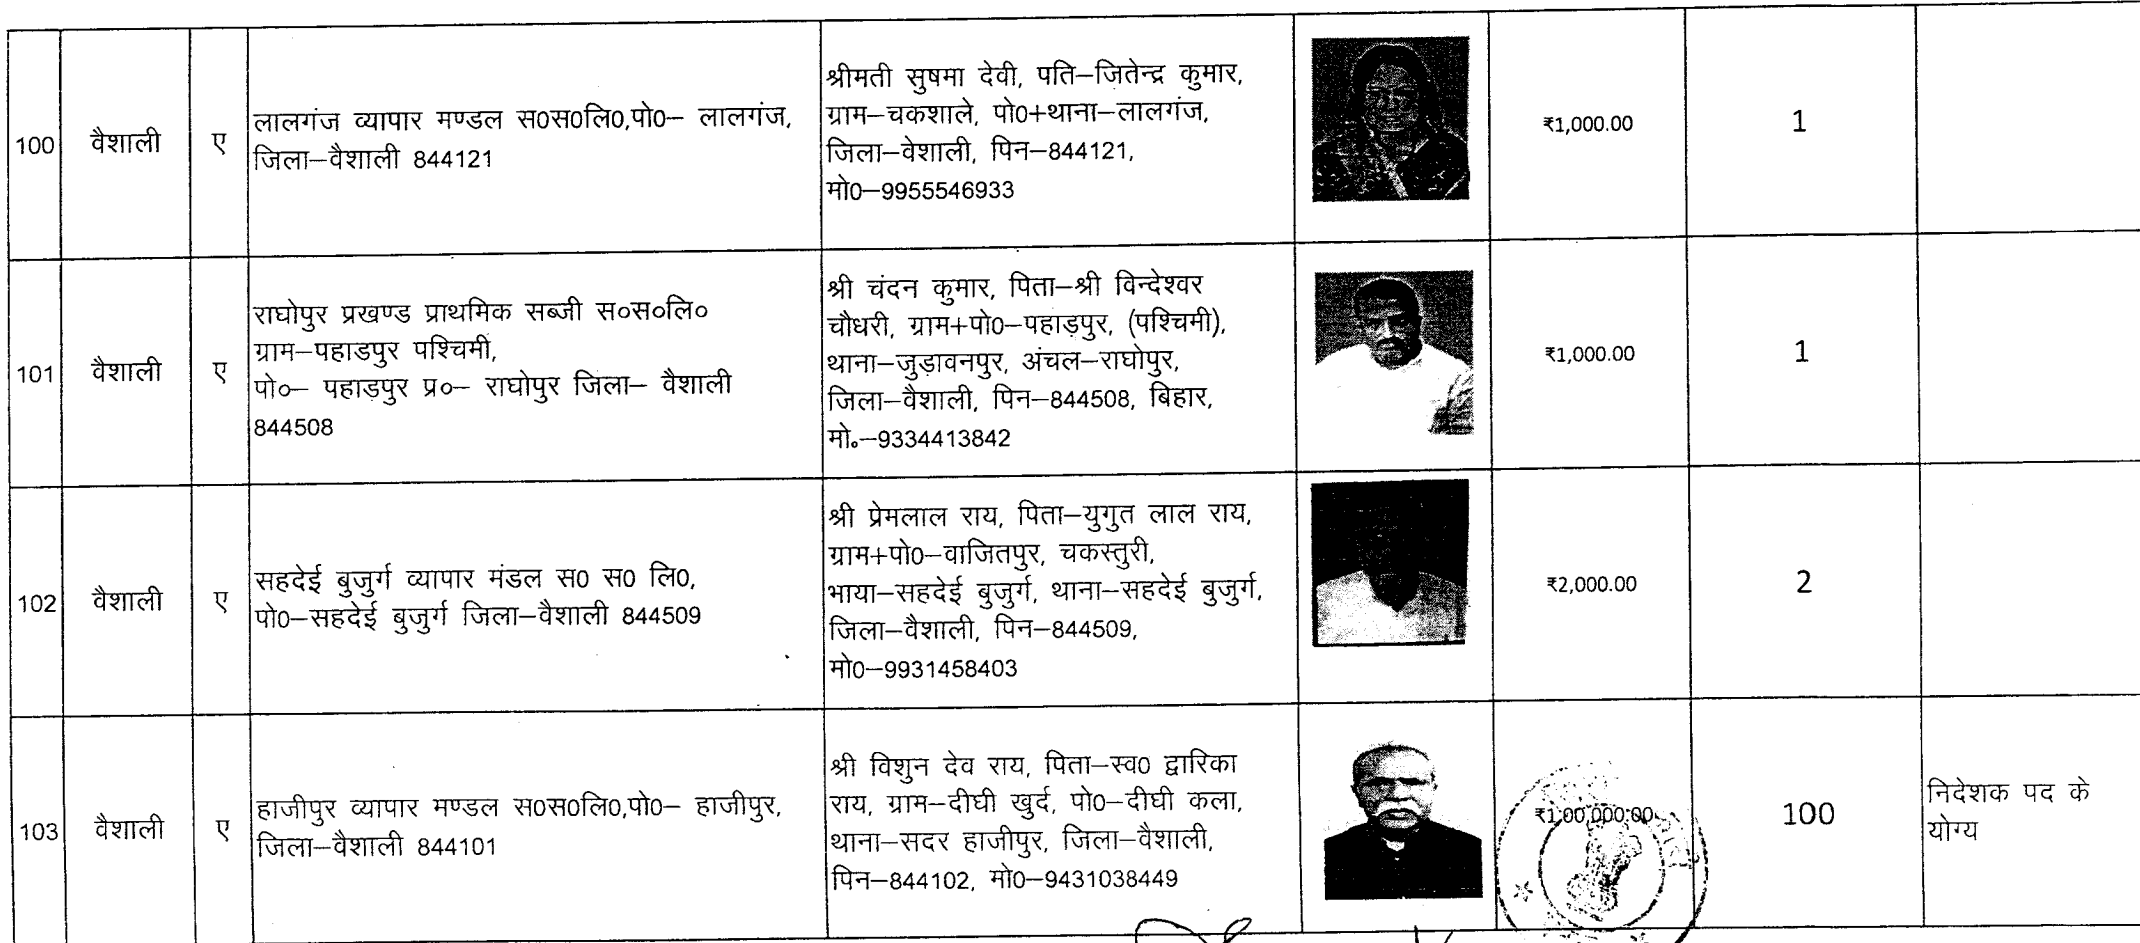 100
वैशाली
ए
लालगंज व्यापार मण्डल स0स0लि0,पो0– लालगंज,
जिला–वैशाली 844121
श्रीमती सुषमा देवी, पति–जितेन्द्र कुमार,
ग्राम–चकशाले, पो0+थाना–लालगंज,
जिला–वेशाली, पिन–844121,
मो0–9955546933
₹1,000.00
1
101
वैशाली
ए
राघोपुर प्रखण्ड प्राथमिक सब्जी स०स०लि०
ग्राम–पहाडपुर पश्चिमी,
पो०– पहाड़पुर प्र०– राघोपुर जिला– वैशाली
844508
श्री चंदन कुमार, पिता–श्री विन्देश्वर
चौधरी, ग्राम+पो0–पहाड़पुर, (पश्चिमी),
थाना–जुड़ावनपुर, अंचल–राघोपुर,
जिला–वैशाली, पिन–844508, बिहार,
मो०–9334413842
₹1,000.00
1
102
वैशाली
ए
सहदेई बुजुर्ग व्यापार मंडल स0 स0 लि0,
पो0–सहदेई बुजुर्ग जिला–वैशाली 844509
श्री प्रेमलाल राय, पिता–युगुत लाल राय,
ग्राम+पो0–वाजितपुर, चकस्तुरी,
भाया–सहदेई बुजुर्ग, थाना–सहदेई बुजुर्ग,
जिला–वैशाली, पिन–844509,
मो0–9931458403
₹2,000.00
2
103
वैशाली
ए
हाजीपुर व्यापार मण्डल स0स0लि0,पो0– हाजीपुर,
जिला–वैशाली 844101
श्री विशुन देव राय, पिता–स्व0 द्वारिका
राय, ग्राम–दीघी खुर्द, पो0–दीघी कला,
थाना–सदर हाजीपुर, जिला–वैशाली,
पिन–844102, मो0–9431038449
₹1,00,000.00
100
निदेशक पद के
योग्य